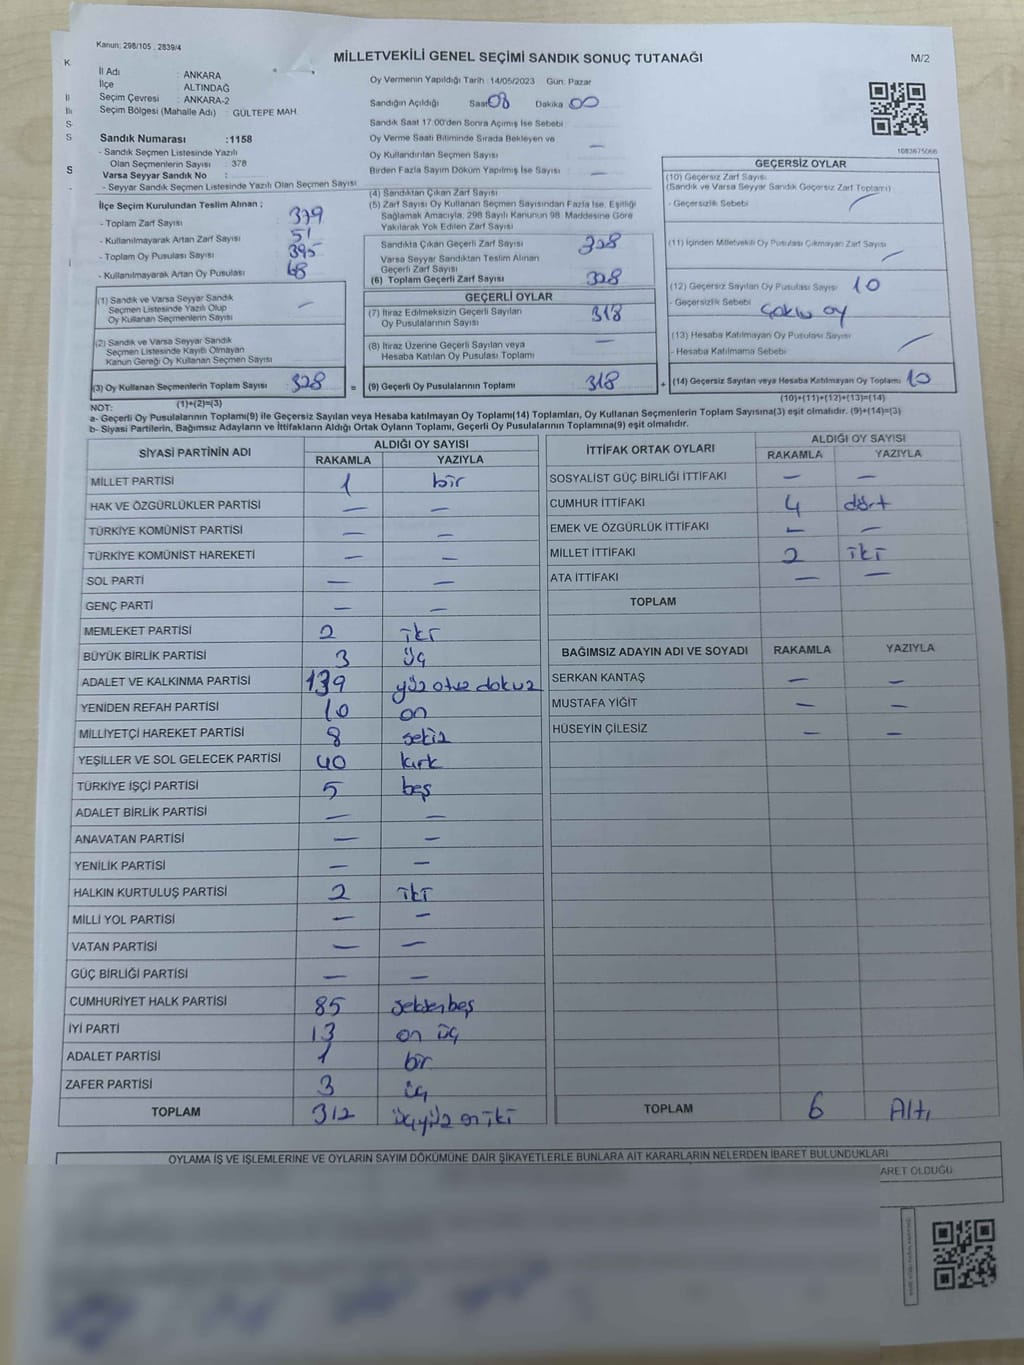 Kanun: 298/105, 2839/4
MİLLETVEKİLİ GENEL SEÇİMİ SANDIK SONUÇ TUTANAĞI
M/2
İl Adı : ANKARA
İlçe : ALTINDAĞ
Seçim Çevresi : ANKARA-2
Seçim Bölgesi (Mahalle Adı) : GÜLTEPE MAH.
Oy Vermenin Yapıldığı Tarih :14/05/2023 Gün: Pazar
Sandığın Açıldığı Saat 08 Dakika 00
Sandık Saat 17:00'den Sonra Açımış İse Sebebi
Oy Verme Saati Bitiminde Sırada Bekleyen ve
Oy Kullandırılan Seçmen Sayısı —
Birden Fazla Sayım Döküm Yapılmış İse Sayısı —
1083675066
Sandık Numarası :1158
- Sandık Seçmen Listesinde Yazılı
Olan Seçmenlerin Sayısı : 378
Varsa Seyyar Sandık No :
- Seyyar Sandık Seçmen Listesinde Yazılı Olan Seçmen Sayısı
İlçe Seçim Kurulundan Teslim Alınan ;
- Toplam Zarf Sayısı 379
- Kullanılmayarak Artan Zarf Sayısı 51
- Toplam Oy Pusulası Sayısı 395
- Kullanılmayarak Artan Oy Pusulası 68
(1) Sandık ve Varsa Seyyar Sandık
Seçmen Listesinde Yazılı Olup
Oy Kullanan Seçmenlerin Sayısı —
(2) Sandık ve Varsa Seyyar Sandık
Seçmen Listesinde Kayıtlı Olmayan
Kanun Gereği Oy Kullanan Seçmen Sayısı
(3) Oy Kullanan Seçmenlerin Toplam Sayısı 328
(1)+(2)=(3)
(4) Sandıktan Çıkan Zarf Sayısı
(5) Zarf Sayısı Oy Kullanan Seçmen Sayısından Fazla İse, Eşitliği
Sağlamak Amacıyla, 298 Sayılı Kanunun 98. Maddesine Göre
Yakılarak Yok Edilen Zarf Sayısı
Sandıkta Çıkan Geçerli Zarf Sayısı 328
Varsa Seyyar Sandıktan Teslim Alınan
Geçerli Zarf Sayısı
(6) Toplam Geçerli Zarf Sayısı 328
GEÇERLİ OYLAR
(7) İtiraz Edilmeksizin Geçerli Sayılan
Oy Pusulalarının Sayısı 318
(8) İtiraz Üzerine Geçerli Sayılan veya
Hesaba Katılan Oy Pusulası Toplamı —
= (9) Geçerli Oy Pusulalarının Toplamı 318
GEÇERSİZ OYLAR
(10) Geçersiz Zarf Sayısı
(Sandık ve Varsa Seyyar Sandık Geçersiz Zarf Toplamı)
- Geçersizlik Sebebi —
(11) İçinden Milletvekili Oy Pusulası Çıkmayan Zarf Sayısı —
(12) Geçersiz Sayılan Oy Pusulası Sayısı 10
- Geçersizlik Sebebi çoklu oy
(13) Hesaba Katılmayan Oy Pusulası Sayısı —
- Hesaba Katılmama Sebebi
+ (14) Geçersiz Sayılan veya Hesaba Katılmayan Oy Toplamı 10
(10)+(11)+(12)+(13)=(14)
NOT:
a- Geçerli Oy Pusulalarının Toplamı(9) ile Geçersiz Sayılan veya Hesaba katılmayan Oy Toplamı(14) Toplamları, Oy Kullanan Seçmenlerin Toplam Sayısına(3) eşit olmalıdır. (9)+(14)=(3)
b- Siyasi Partilerin, Bağımsız Adayların ve İttifakların Aldığı Ortak Oyların Toplamı, Geçerli Oy Pusulalarının Toplamına(9) eşit olmalıdır.
SİYASİ PARTİNİN ADI ALDIĞI OY SAYISI
RAKAMLA YAZIYLA
MİLLET PARTİSİ 1 bir
HAK VE ÖZGÜRLÜKLER PARTİSİ — —
TÜRKİYE KOMÜNİST PARTİSİ — —
TÜRKİYE KOMÜNİST HAREKETİ — —
SOL PARTİ — —
GENÇ PARTİ — —
MEMLEKET PARTİSİ 2 iki
BÜYÜK BİRLİK PARTİSİ 3 üç
ADALET VE KALKINMA PARTİSİ 139 yüz otuz dokuz
YENİDEN REFAH PARTİSİ 10 on
MİLLİYETÇİ HAREKET PARTİSİ 8 sekiz
YEŞİLLER VE SOL GELECEK PARTİSİ 40 kırk
TÜRKİYE İŞÇİ PARTİSİ 5 beş
ADALET BİRLİK PARTİSİ — —
ANAVATAN PARTİSİ — —
YENİLİK PARTİSİ — —
HALKIN KURTULUŞ PARTİSİ 2 iki
MİLLİ YOL PARTİSİ — —
VATAN PARTİSİ — —
GÜÇ BİRLİĞİ PARTİSİ — —
CUMHURİYET HALK PARTİSİ 85 seksenbeş
İYİ PARTİ 13 on üç
ADALET PARTİSİ 1 bir
ZAFER PARTİSİ 3 üç
TOPLAM 312 üçyüz on iki
İTTİFAK ORTAK OYLARI ALDIĞI OY SAYISI
RAKAMLA YAZIYLA
SOSYALİST GÜÇ BİRLİĞİ İTTİFAKI — —
CUMHUR İTTİFAKI 4 dört
EMEK VE ÖZGÜRLÜK İTTİFAKI — —
MİLLET İTTİFAKI 2 iki
ATA İTTİFAKI — —
TOPLAM
BAĞIMSIZ ADAYIN ADI VE SOYADI RAKAMLA YAZIYLA
SERKAN KANTAŞ — —
MUSTAFA YİĞİT — —
HÜSEYİN ÇİLESİZ — —
TOPLAM 6 Altı
OYLAMA İŞ VE İŞLEMLERİNE VE OYLARIN SAYIM DÖKÜMÜNE DAİR ŞİKAYETLERLE BUNLARA AİT KARARLARIN NELERDEN İBARET BULUNDUKLARI
ARET OLDUĞU